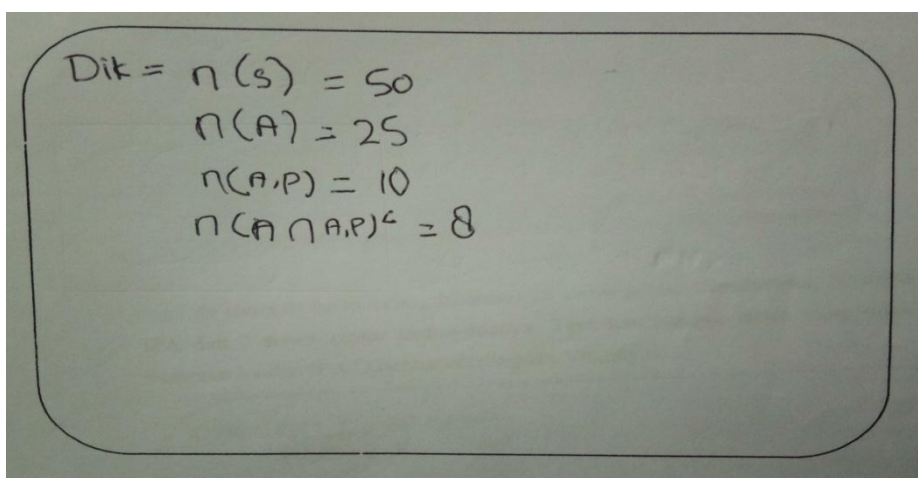 Dik = n(s) = 50
n(A) = 25
n(A,P) = 10
n(A ∩ A,P)ᶜ = 8